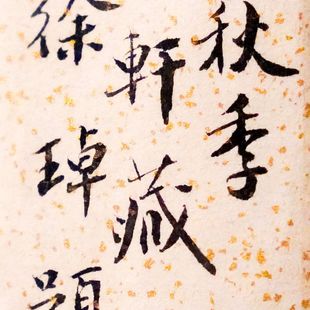 秋季
軒藏
徐琸題